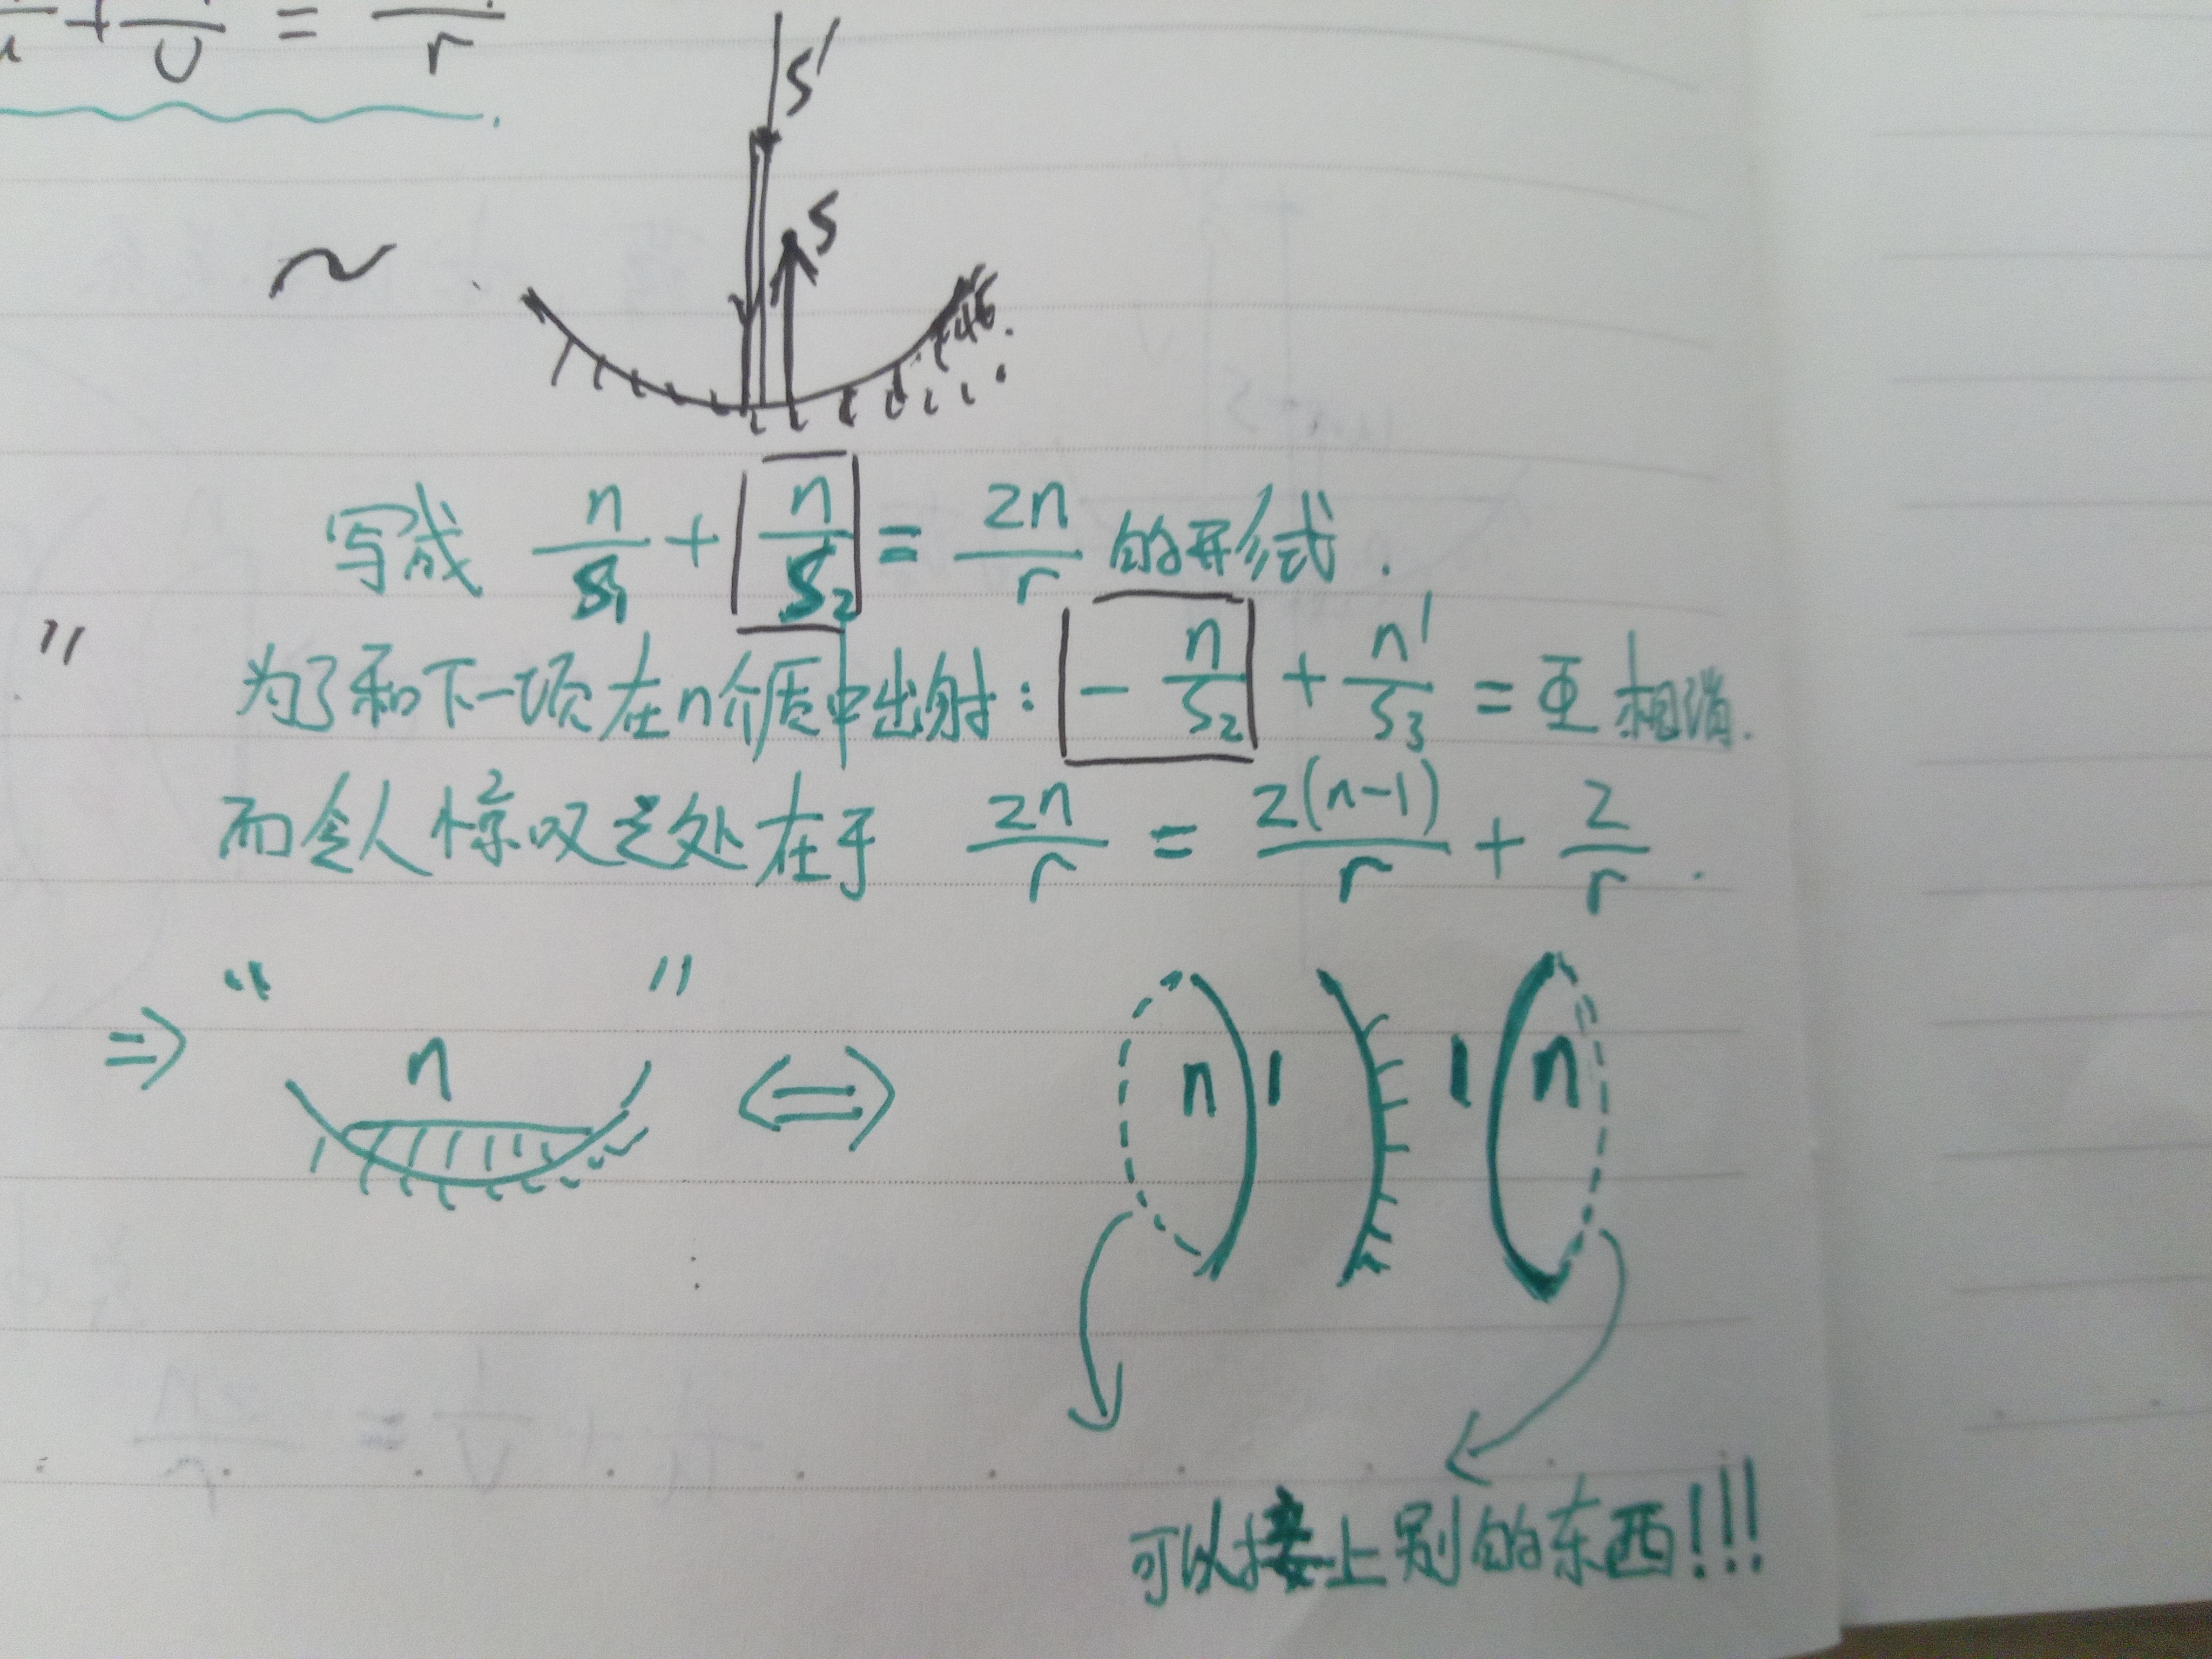 + /U = /r
S'
S
写成 n/S₁ + n/S₂ = 2n/r 的形式.
" 为了和下一项在n介质中出射: - n/S₂ + n'/S₃ = 互相消.
而令人惊叹之处在于 2n/r = 2(n-1)/r + 2/r .
⇒ " n " ⇔ n 1 1 n
可以接上别的东西!!!